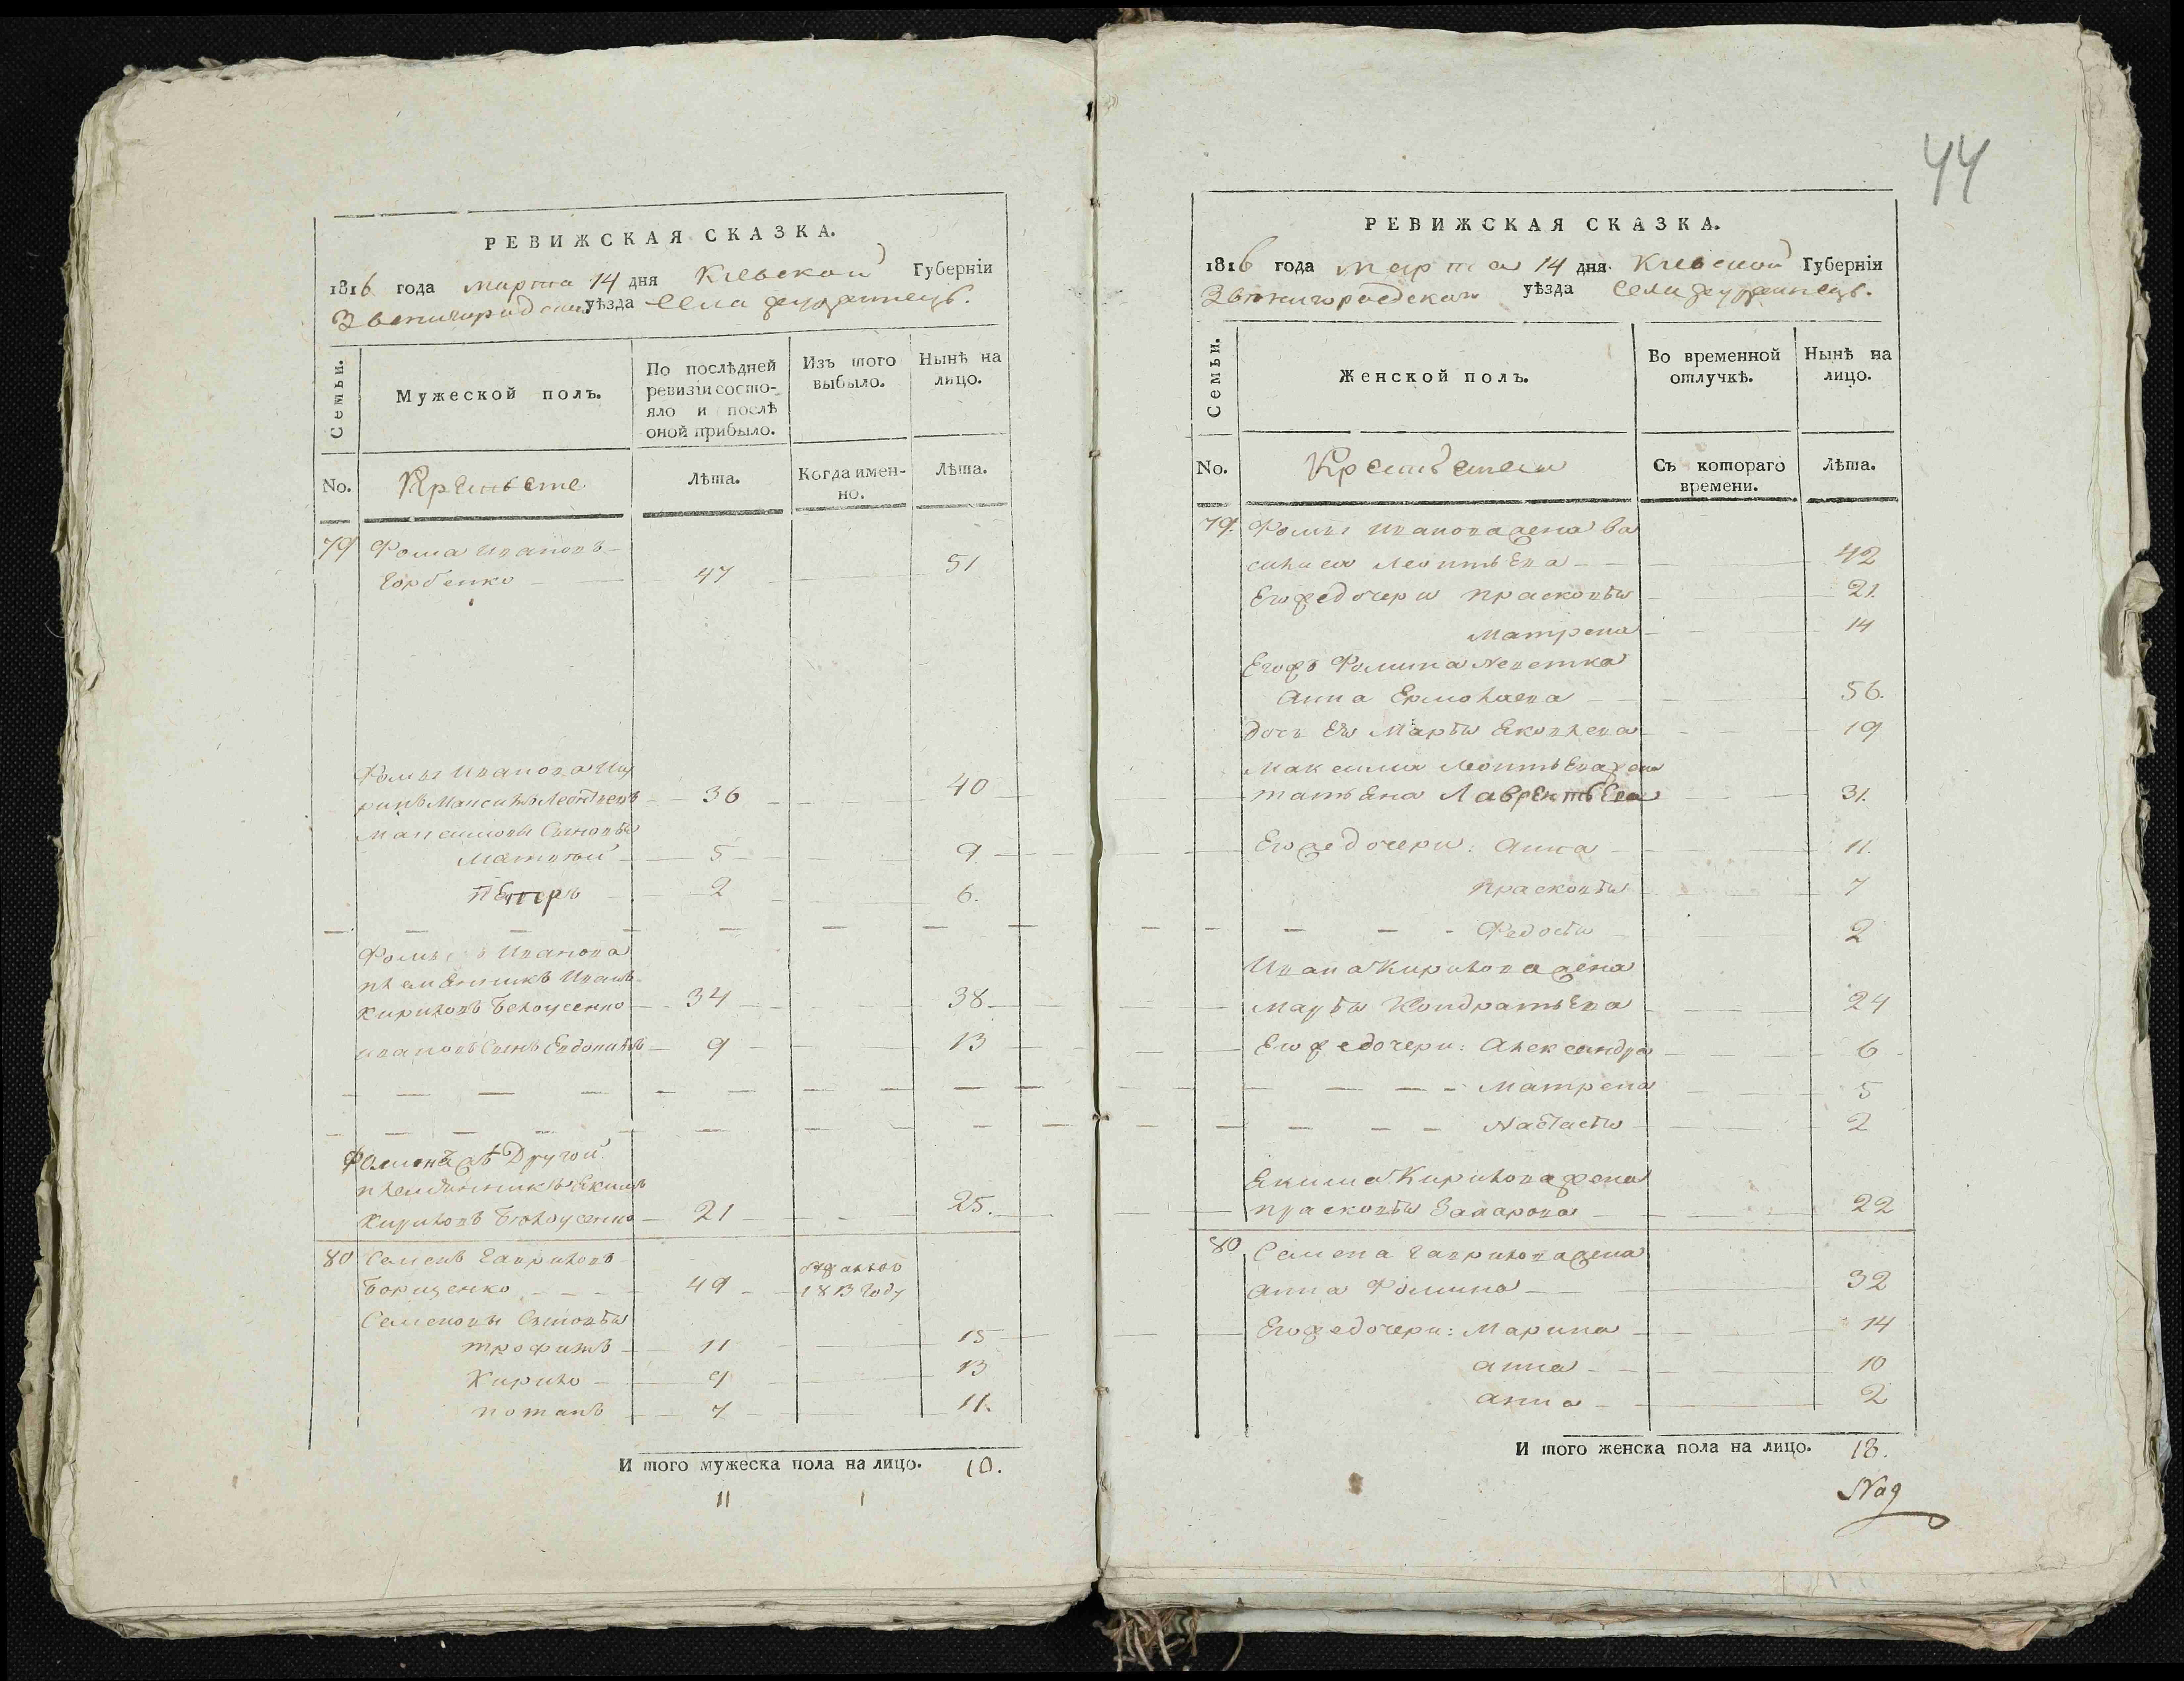 РЕВИЖСКАЯ СКАЗКА.
1816 года марта 14 дня Кіевской Губерніи
Звенигородскаго уѣзда Села
Семьи.
Мужеской полъ.
По послѣдней ревизіи состо-
яло и послѣ
оной прибыло.
Изъ того
выбыло.
Нынѣ на
лицо.
No.
Крестьяне
Лѣта.
Когда имен-
но.
Лѣта.
79 Фома Ивановъ
Горбенко 47 51
Фомы Иванова Шу
ринъ Максимъ Леонтьевъ 36 40
Максимовы Сыновья
Матвѣй 5 9.
Петръ 2 6.
Фомы Иванова
племянникъ Иванъ
Кириловъ Белоусенко 34 38
Ивановъ Сынъ Евдокимъ 9 13
Другой
племянникъ Екимъ
Кириловъ Белоусенко 21 25.
80 Семенъ Гавриловъ
Борщенко 49 1813 году
Семеновы Сыновья
трофимъ 11 15
Кирило 9 13
потапъ 7 11.
И того мужеска пола на лицо. 10.
11 1
44
РЕВИЖСКАЯ СКАЗКА.
1816 года марта 14 дня. Кіевской Губернія
Звенигородскаго уѣзда Села
Семьи.
Женской полъ.
Во временной
отлучкѣ.
Нынѣ на
лицо.
No.
Съ котораго
времени.
Лѣта.
79. Фомы Иванова жена Ва
силиса Леонтьева 42
Его же дочери прасковья 21.
Матрена 14
Его жъ Фомина Невестка
Анна Ермолаева 56.
дочь Ея Марья Яковлева 19
Максима Леонтьева жена
татьяна Лаврентьева 31.
Его же дочери: Анна 11.
прасковья 7
Федосья 2
Ивана Кирилова жена
Марья Кондратьева 24
Его же дочери: Александра 6
Матрена 5
Настасья 2
Екима Кирилова жена
прасковья Захарова 22
80 Семена Гаврилова жена
Анна Фомина 32
Его же дочери: Марина 14
анна 10
анна 2
И того женска пола на лицо. 18.